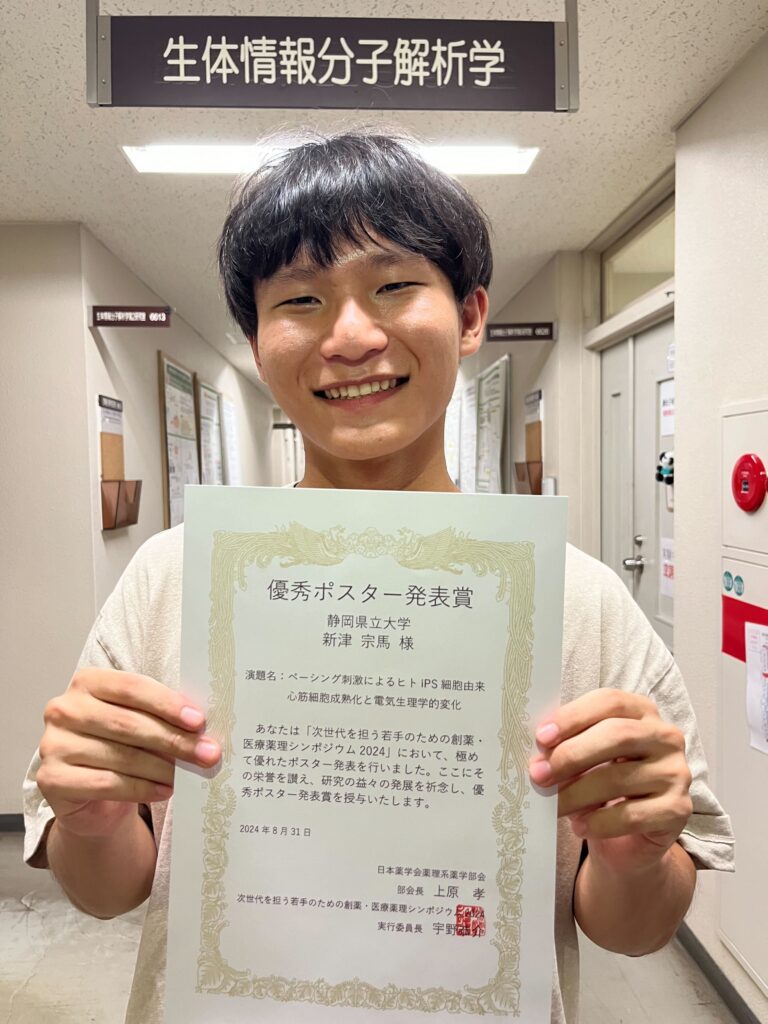 生体情報分子解析学
生体情報分子解析学第2研究室 6613
優秀ポスター発表賞
静岡県立大学
新津 宗馬 様
演題名：ペーシング刺激によるヒト iPS 細胞由来
心筋細胞成熟化と電気生理学的変化
あなたは「次世代を担う若手のための創薬・
医療薬理シンポジウム 2024」において、極め
て優れたポスター発表を行いました。ここにそ
の栄誉を讃え、研究の益々の発展を祈念し、優
秀ポスター発表賞を授与いたします。
2024 年 8 月 31 日
日本薬学会薬理系薬学部会
部会長 上原 孝
次世代を担う若手のための創薬・医療薬理シンポジウム 2024
実行委員長 宇野恭介